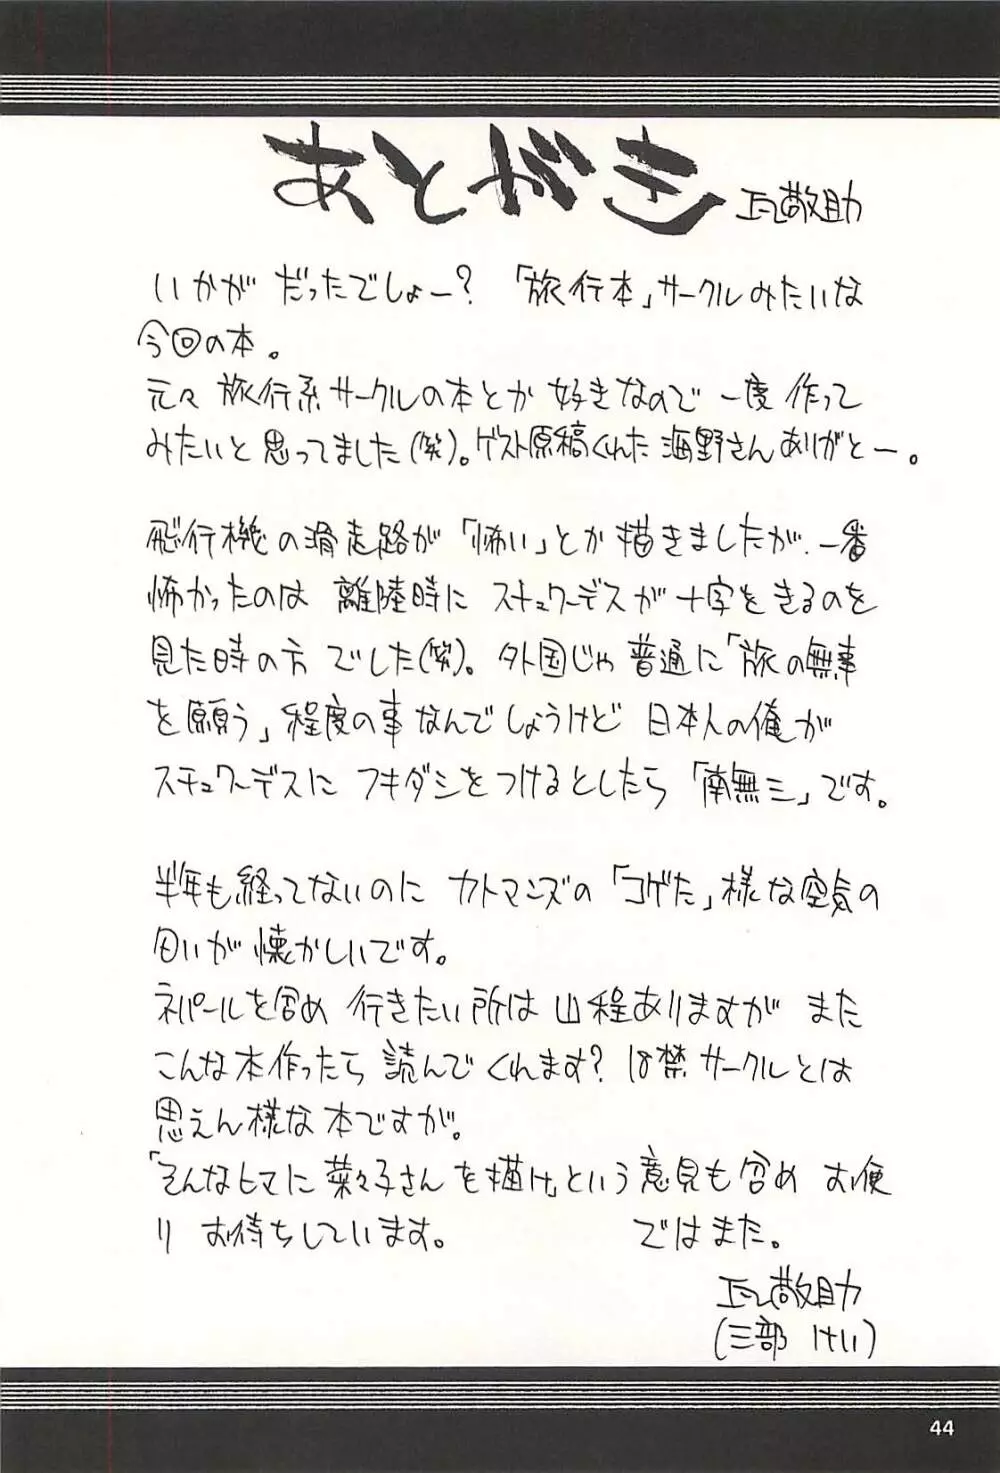 あとがき 瓦敬助
いかがだったでしょー？「旅行本」サークルみたいな
今回の本。
元々旅行系サークルの本とか好きなので一度作って
みたいと思ってました(笑)。ゲスト原稿くれた海野さんありがとー。
飛行機の滑走路が「怖い」とか描きましたが、一番
怖かったのは離陸時にスチュワーデスが十字をきるのを
見た時の方でした(笑)。外国じゃ普通に「旅の無事
を願う」程度の事なんでしょうけど日本人の俺が
スチュワーデスにフキダシをつけるとしたら「南無三」です。
半年も経ってないのにカトマンズの「コゲた」様な空気の
匂いが懐かしいです。
ネパールを含め行きたい所は山程ありますがまた
こんな本作ったら読んでくれます？18禁サークルとは
思えん様な本ですが。
「そんなヒマに菜々子さんを描け」という意見も含めお便
りお待ちしています。 ではまた。
瓦敬助
(三部けい)
44